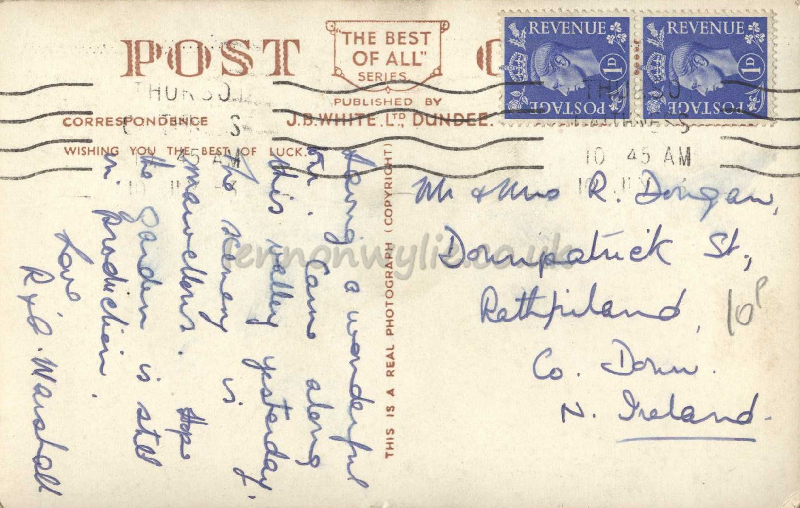 POST C
"THE BEST
OF ALL"
SERIES.
PUBLISHED BY
J.B.WHITE. LTD, DUNDEE.
CORRESPONDENCE
WISHING YOU THE BEST OF LUCK.
THIS IS A REAL PHOTOGRAPH (COPYRIGHT)
REVENUE
1D
POSTAGE
REVENUE
1D
POSTAGE
THURSO
S
10 45 AM
THURSO
CAITHNESS
10 45 AM
Having a wonderful
time. Came along
this valley yesterday.
The scenery is
marvellous. Hope
the garden is still
in production.
Love
R & C. Marshall
Mr & Mrs R. Dougan,
Downpatrick St,
Rathfriland,
Co. Down.
N. Ireland.
10P
lennonwylie.co.uk